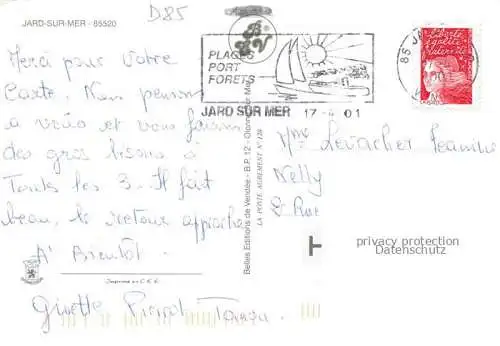 JARD-SUR-MER - 85520
D85
Merci pour Votre
Carte. Nous pensons
a vous et vous faisons
des gros bisous à
Touts les 3. Il fait
beau, le retour approche
A' Bientôt.
Imprimé en C.E.E.
Ginette
PLAGES
PORT
FORETS
JARD SUR MER 17-4 01
85 JA
Liberté
égalité
Belles Editions de Vendée - B.P. 12 - Olonne sur Mer
LA POSTE AGREMENT N° 120
Mme Levacher
Nelly
St Rue
privacy protection
Datenschutz